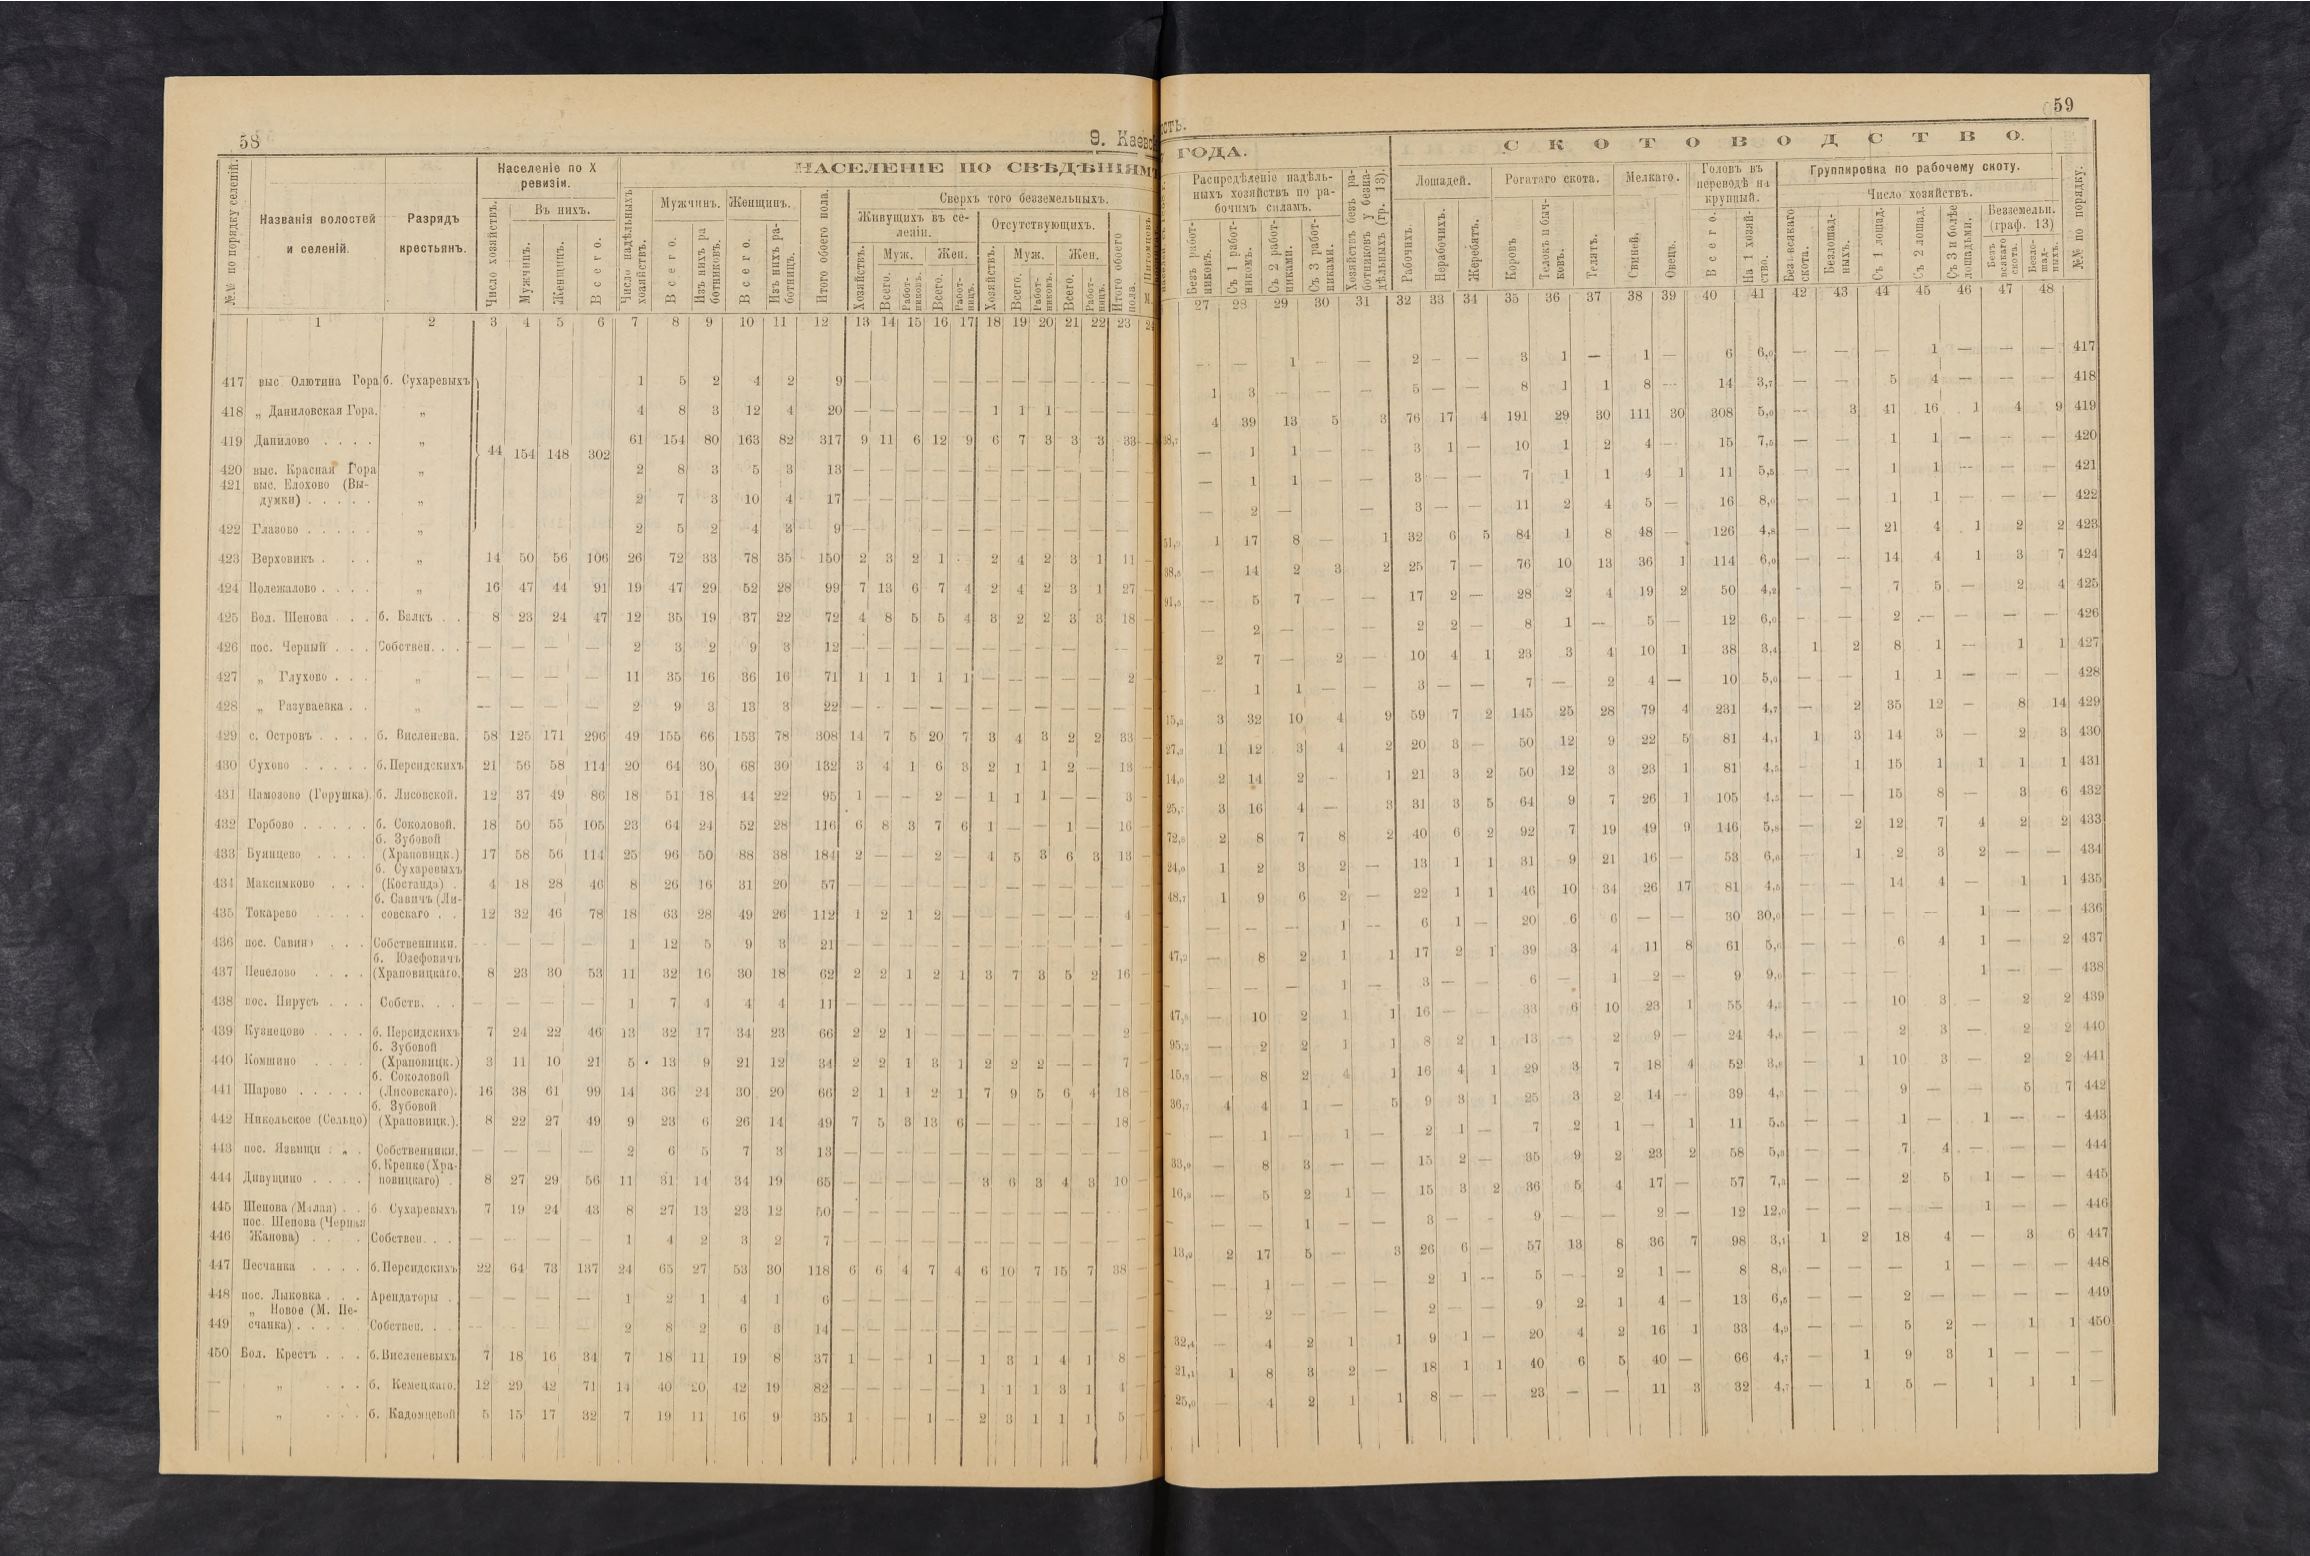 58
9. Каевс
№№ по порядку селеній.
Названія волостей и селеній.
Разрядъ крестьянъ.
Населеніе по X ревизіи.
Число хозяйствъ.
Въ нихъ.
Мужчинъ.
Женщинъ.
Всего.
НАСЕЛЕНІЕ ПО СВѢДѢНІЯМЪ
Число надѣльныхъ хозяйствъ.
Мужчинъ.
Женщинъ.
Всего.
Изъ нихъ работниковъ.
Всего.
Изъ нихъ работницъ.
Итого обоего пола.
Сверхъ того безземельныхъ.
Живущихъ въ селеніи.
Отсутствующихъ.
Хозяйствъ.
Муж.
Жен.
Хозяйствъ.
Муж.
Жен.
Всего.
Работниковъ.
Всего.
Работницъ.
Всего.
Работниковъ.
Всего.
Работницъ.
Итого обоего пола.
1 2 3 4 5 6 7 8 9 10 11 12 13 14 15 16 17 18 19 20 21 22 23 24
417 выс. Олютина Гора б. Сухаревыхъ 1 5 2 4 2 9 — — — — — — — — — —
418 „ Даниловская Гора. „ 4 8 3 12 4 20 — — — — — 1 1 1 — — —
419 Данилово . . . . „ 61 154 80 163 82 317 9 11 6 12 9 6 7 3 3 3 33
44 154 148 302
420 выс. Красная Гора „ 2 8 3 5 3 13 — — — — — — — — — — —
421 выс. Елохово (Выдумки) . . . . . „ 2 7 3 10 4 17 — — — — — — — — — — —
422 Глазово . . . . . „ 2 5 2 4 3 9 — — — — — — — — — — —
423 Верховикъ . . . „ 14 50 56 106 26 72 33 78 35 150 2 3 2 1 - 2 4 2 3 1 11
424 Полежалово . . . . „ 16 47 44 91 19 47 29 52 28 99 7 13 6 7 4 2 4 2 3 1 27
425 Вол. Шенова . . . б. Балкъ . . 8 23 24 47 12 35 19 37 22 72 4 8 5 5 4 3 2 2 3 3 18
426 пос. Черный . . . Собствен. . . — — — — 2 3 2 9 3 12 — — — — — — — — — — —
427 „ Глухово . . . „ — — — — 11 35 16 36 16 71 1 1 1 1 1 — — — — — 2
428 „ Разуваевка . . „ — — — — 2 9 3 13 3 22 — — — — — — — — — — —
429 с. Островъ . . . . б. Висленева. 58 125 171 296 49 155 66 153 78 308 14 7 5 20 7 3 4 3 2 2 33
430 Сухово . . . . . б. Персидскихъ 21 56 58 114 20 64 30 68 30 132 3 4 1 6 3 2 1 1 2 — 13
431 Памозово (Горушка). б. Лисовской. 12 37 49 86 18 51 18 44 22 95 1 — — 2 — 1 1 1 — — 3
432 Горбово . . . . . б. Соколовой. 18 50 55 105 23 64 24 52 28 116 6 8 3 7 6 1 — — 1 — 16
433 Буянцево . . . . б. Зубовой (Храповицк.) 17 58 56 114 25 96 50 88 38 184 2 — — 2 — 4 5 3 6 3 13
434 Максимково . . . б. Сухаревыхъ (Костандо) . 4 18 28 46 8 26 16 31 20 57 — — — — — — — — — — —
435 Токарево . . . . б. Савичъ (Лисовскаго . . 12 32 46 78 18 63 28 49 26 112 1 2 1 2 — — — — — — 4
436 пос. Савино . . . Собственники. — — — — 1 12 5 9 3 21 — — — — — — — — — — —
437 Пепелово . . . . б. Юзефовичъ (Храповицкаго. 8 23 30 53 11 32 16 30 18 62 2 2 1 2 1 3 7 3 5 2 16
438 пос. Пирусъ . . . Собств. . . — — — — 1 7 4 4 4 11 — — — — — — — — — — —
439 Кузнецово . . . . б. Персидскихъ 7 24 22 46 13 32 17 34 23 66 2 2 1 — — — — — — — 2
440 Комшино . . . . б. Зубовой (Храповицк.) 3 11 10 21 5 13 9 21 12 34 2 2 1 3 1 2 2 2 — — 7
441 Шарово . . . . . б. Соколовой (Лисовскаго). 16 38 61 99 14 36 24 30 20 66 2 1 1 2 1 7 9 5 6 4 18
442 Никольское (Сельцо) б. Зубовой (Храповицк.). 8 22 27 49 9 23 6 26 14 49 7 5 3 13 6 — — — — — 18
443 пос. Язвищи . . . Собственники. — — — — 2 6 5 7 3 13 — — — — — — — — — — —
444 Дивущино . . . . б. Крепке (Храповицкаго) . 8 27 29 56 11 31 14 34 19 65 — — — — — 3 6 3 4 3 10
445 Шенова (Малая) . . б. Сухаревыхъ 7 19 24 43 8 27 13 23 12 50 — — — — — — — — — — —
446 пос. Шепова (Черная Жанова) . . . . Собствен. . . — — — — 1 4 2 3 2 7 — — — — — — — — — — —
447 Песчанка . . . . б. Персидскихъ 22 64 73 137 24 65 27 53 30 118 6 6 4 7 4 6 10 7 15 7 38
448 пос. Лыковка . . . Арендаторы . — — — — 1 2 1 4 1 6 — — — — — — — — — — —
449 „ Новое (М. Песчанка) . . . . . Собствен. . . — — — — 2 8 2 6 3 14 — — — — — — — — — — —
450 Вол. Крестъ . . . б. Висленевыхъ 7 18 16 34 7 18 11 19 8 37 1 — — 1 — 1 3 1 4 1 8
— „ . . . б. Кемецкаго. 12 29 42 71 14 40 20 42 19 82 — — — — — 1 1 1 3 1 4
— „ . . . б. Кадомцевой 5 15 17 32 7 19 11 16 9 35 1 — — 1 — 2 3 1 1 1 5
59
ость.
ГОДА.
СКОТОВОДСТВО.
Распредѣленіе надѣльныхъ хозяйствъ по рабочимъ силамъ.
Безъ работниковъ.
Съ 1 работникомъ.
Съ 2 работниками.
Съ 3 работниками.
Хозяйствъ безъ работниковъ у безнадѣльныхъ (гр. 13).
Лошадей.
Рабочихъ.
Нерабочихъ.
Жеребятъ.
Рогатаго скота.
Коровъ
Телокъ и бычковъ.
Телятъ.
Мелкаго.
Свиней.
Овецъ.
Головъ въ переводѣ на крупный.
Всего.
На 1 хозяйство.
Группировка по рабочему скоту.
Число хозяйствъ.
Безъ всякаго скота.
Безлошадныхъ.
Съ 1 лошад.
Съ 2 лошад.
Съ 3 и болѣе лошадьми.
Безземельн. (граф. 13)
Безъ всякаго скота.
Безлошадныхъ.
№№ по порядку.
27 28 29 30 31 32 33 34 35 36 37 38 39 40 41 42 43 44 45 46 47 48
- — 1 — — 2 — — 3 1 — 1 — 6 6,0 — — — 1 — — — 417
1 3 — — — 5 — — 8 1 1 8 — 14 3,7 — — 5 4 — — — 418
38,7 4 39 13 5 3 76 17 4 191 29 30 111 30 308 5,0 — 3 41 16 1 4 9 419
— 1 1 — — 3 1 — 10 1 2 4 — 15 7,5 — — 1 1 — — — 420
— 1 1 — — 3 — — 7 1 1 4 1 11 5,5 — — 1 1 — — — 421
— 2 — — — 3 — — 11 2 4 5 — 16 8,0 — — 1 1 — — — 422
1 17 8 — 1 32 6 5 84 1 8 48 — 126 4,8 — — 21 4 1 2 2 423
38,5 — 14 2 3 2 25 7 — 76 10 13 36 1 114 6,0 — — 14 4 1 3 7 424
91,5 — 5 7 — — 17 2 — 28 2 4 19 2 50 4,2 — — 7 5 — 2 4 425
— 2 — — — 2 2 — 8 1 — 5 — 12 6,0 — — 2 — — — — 426
2 7 — 2 — 10 4 1 23 3 4 10 1 38 3,4 1 2 8 1 — 1 1 427
- 1 1 — — 3 — — 7 — 2 4 — 10 5,0 — — 1 1 — — — 428
3 32 10 4 9 59 7 2 145 25 28 79 4 231 4,7 — 2 35 12 — 8 14 429
1 12 3 4 2 20 3 — 50 12 9 22 5 81 4,1 1 3 14 3 — 2 3 430
14,0 2 14 2 — 1 21 3 2 50 12 3 23 1 81 4,5 — 1 15 1 1 1 1 431
25,7 3 16 4 — 3 31 3 5 64 9 7 26 1 105 4,5 — — 15 8 — 3 6 432
2 8 7 8 2 40 6 2 92 7 19 49 9 146 5,8 — 2 12 7 4 2 2 433
24,0 1 2 3 2 — 13 1 1 31 9 21 16 — 53 6,6 — 1 2 3 2 — — 434
48,7 1 9 6 2 — 22 1 1 46 10 34 26 17 81 4,5 — — 14 4 — 1 1 435
— — — 1 — 6 1 — 20 6 6 — — 30 30,0 — — — — 1 — — 436
47,2 — 8 2 1 1 17 2 1 39 3 4 11 8 61 5,6 — — 6 4 1 — 2 437
— — — 1 — 3 — — 6 — 1 2 — 9 9,0 — — — — 1 — — 438
— 10 2 1 1 16 — — 33 6 10 23 1 55 — — 10 3 — 2 2 439
— 2 2 1 1 8 2 1 13 — 2 9 — 24 4,8 — — 2 3 — 2 2 440
— 8 2 4 1 16 4 1 29 3 7 18 4 52 — 1 10 3 — 2 2 441
36,7 4 4 1 — 5 9 3 1 25 3 2 14 — 39 4,3 — — 9 — — 5 7 442
— 1 — 1 — 2 1 — 7 2 1 — 1 11 5,5 — — 1 — 1 — — 443
33,0 — 8 3 — — 15 2 — 35 9 2 23 2 58 5,3 — — 7 4 — — — 444
— 5 2 1 — 15 3 2 36 5 4 17 — 57 — — 2 5 1 — — 445
— — 1 — — 3 — — 9 — — 2 — 12 12,0 — — — — 1 — — 446
13,0 2 17 5 — 3 26 6 — 57 13 8 36 7 98 1 2 18 4 — 3 6 447
— 1 — — — 2 1 — 5 — 2 1 — 8 8,0 — — — 1 — — — 448
— 2 — — — 2 — — 9 2 1 4 — 13 6,5 — — 2 — — — — 449
32,4 — 4 2 1 1 9 1 — 20 4 2 16 1 33 — — 5 2 — 1 1 450
21,1 1 8 3 2 — 18 1 1 40 6 5 40 — 66 4,7 — 1 9 3 1 — — —
25,0 — 4 2 1 1 8 — — 23 — — 11 3 32 — 1 5 — 1 1 1 —